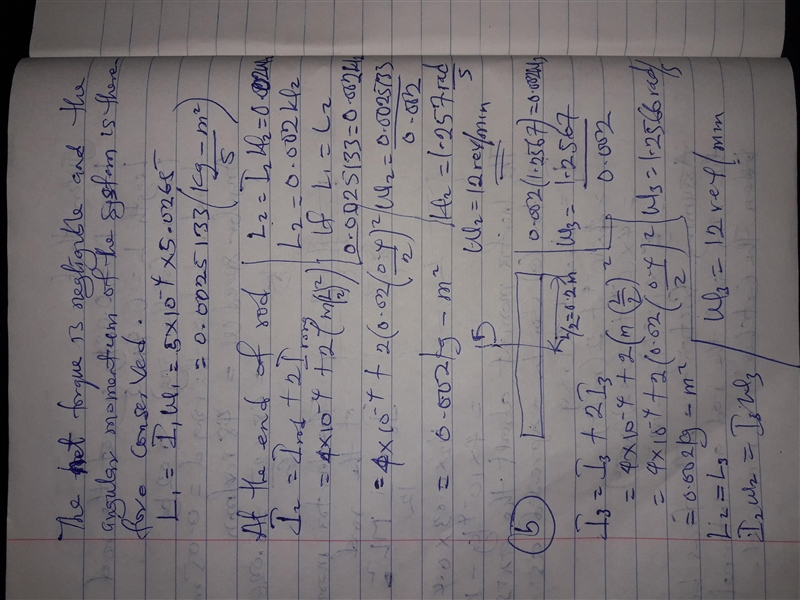 The net torque is negligible and the
angular momentum of the system is there
fore conserved.
L₁ = I₁W₁ = 5×10⁻⁴ × 5.0265
= 0.0025133 (kg-m²/s)
At the end of rod
I₂ = I rod + 2 I ring
= 4×10⁻⁴ + 2(m(L/2)²)
= 4×10⁻⁴ + 2(0.02(0.4/2)²
= 0.002 kg-m²
L₂ = I₂W₂ = 0.002W₂
L₂ = 0.002W₂
If L₁ = L₂
0.0025133 = 0.002W₂
W₂ = 0.0025133/0.002
W₂ = 1.257 rad/s
W₂ = 12 rev/min
b
L/2 = 0.2m
I₃ = I₃ + 2I₃
= 4×10⁻⁴ + 2(m(L/2)²
= 4×10⁻⁴ + 2(0.02(0.4/2)²
= 0.002kg-m²
L₂ = L₃
I₂W₂ = I₃W₃
0.002(1.2567) = 0.002W₃
W₃ = 1.2567/0.002
W₃ = 1.2566 rad/s
W₃ = 12 rev/min